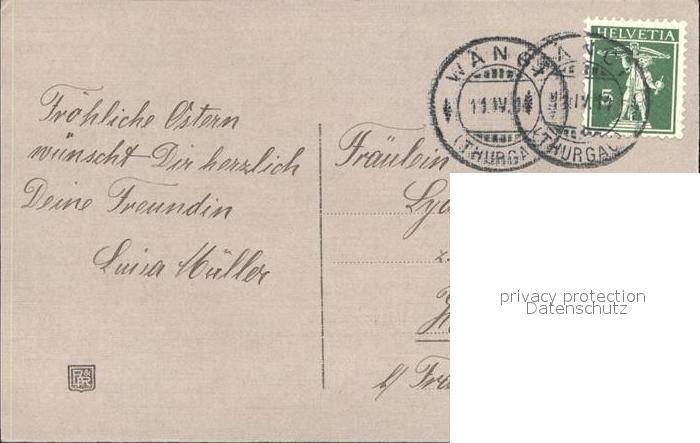 Fröhliche Ostern
wünscht Dir herzlich
Deine Freundin
Luisa Müller
WÄNGI
11.IV.
(THURGAU)
HELVETIA
5
Fräulein
z.
b/
privacy protection
Datenschutz